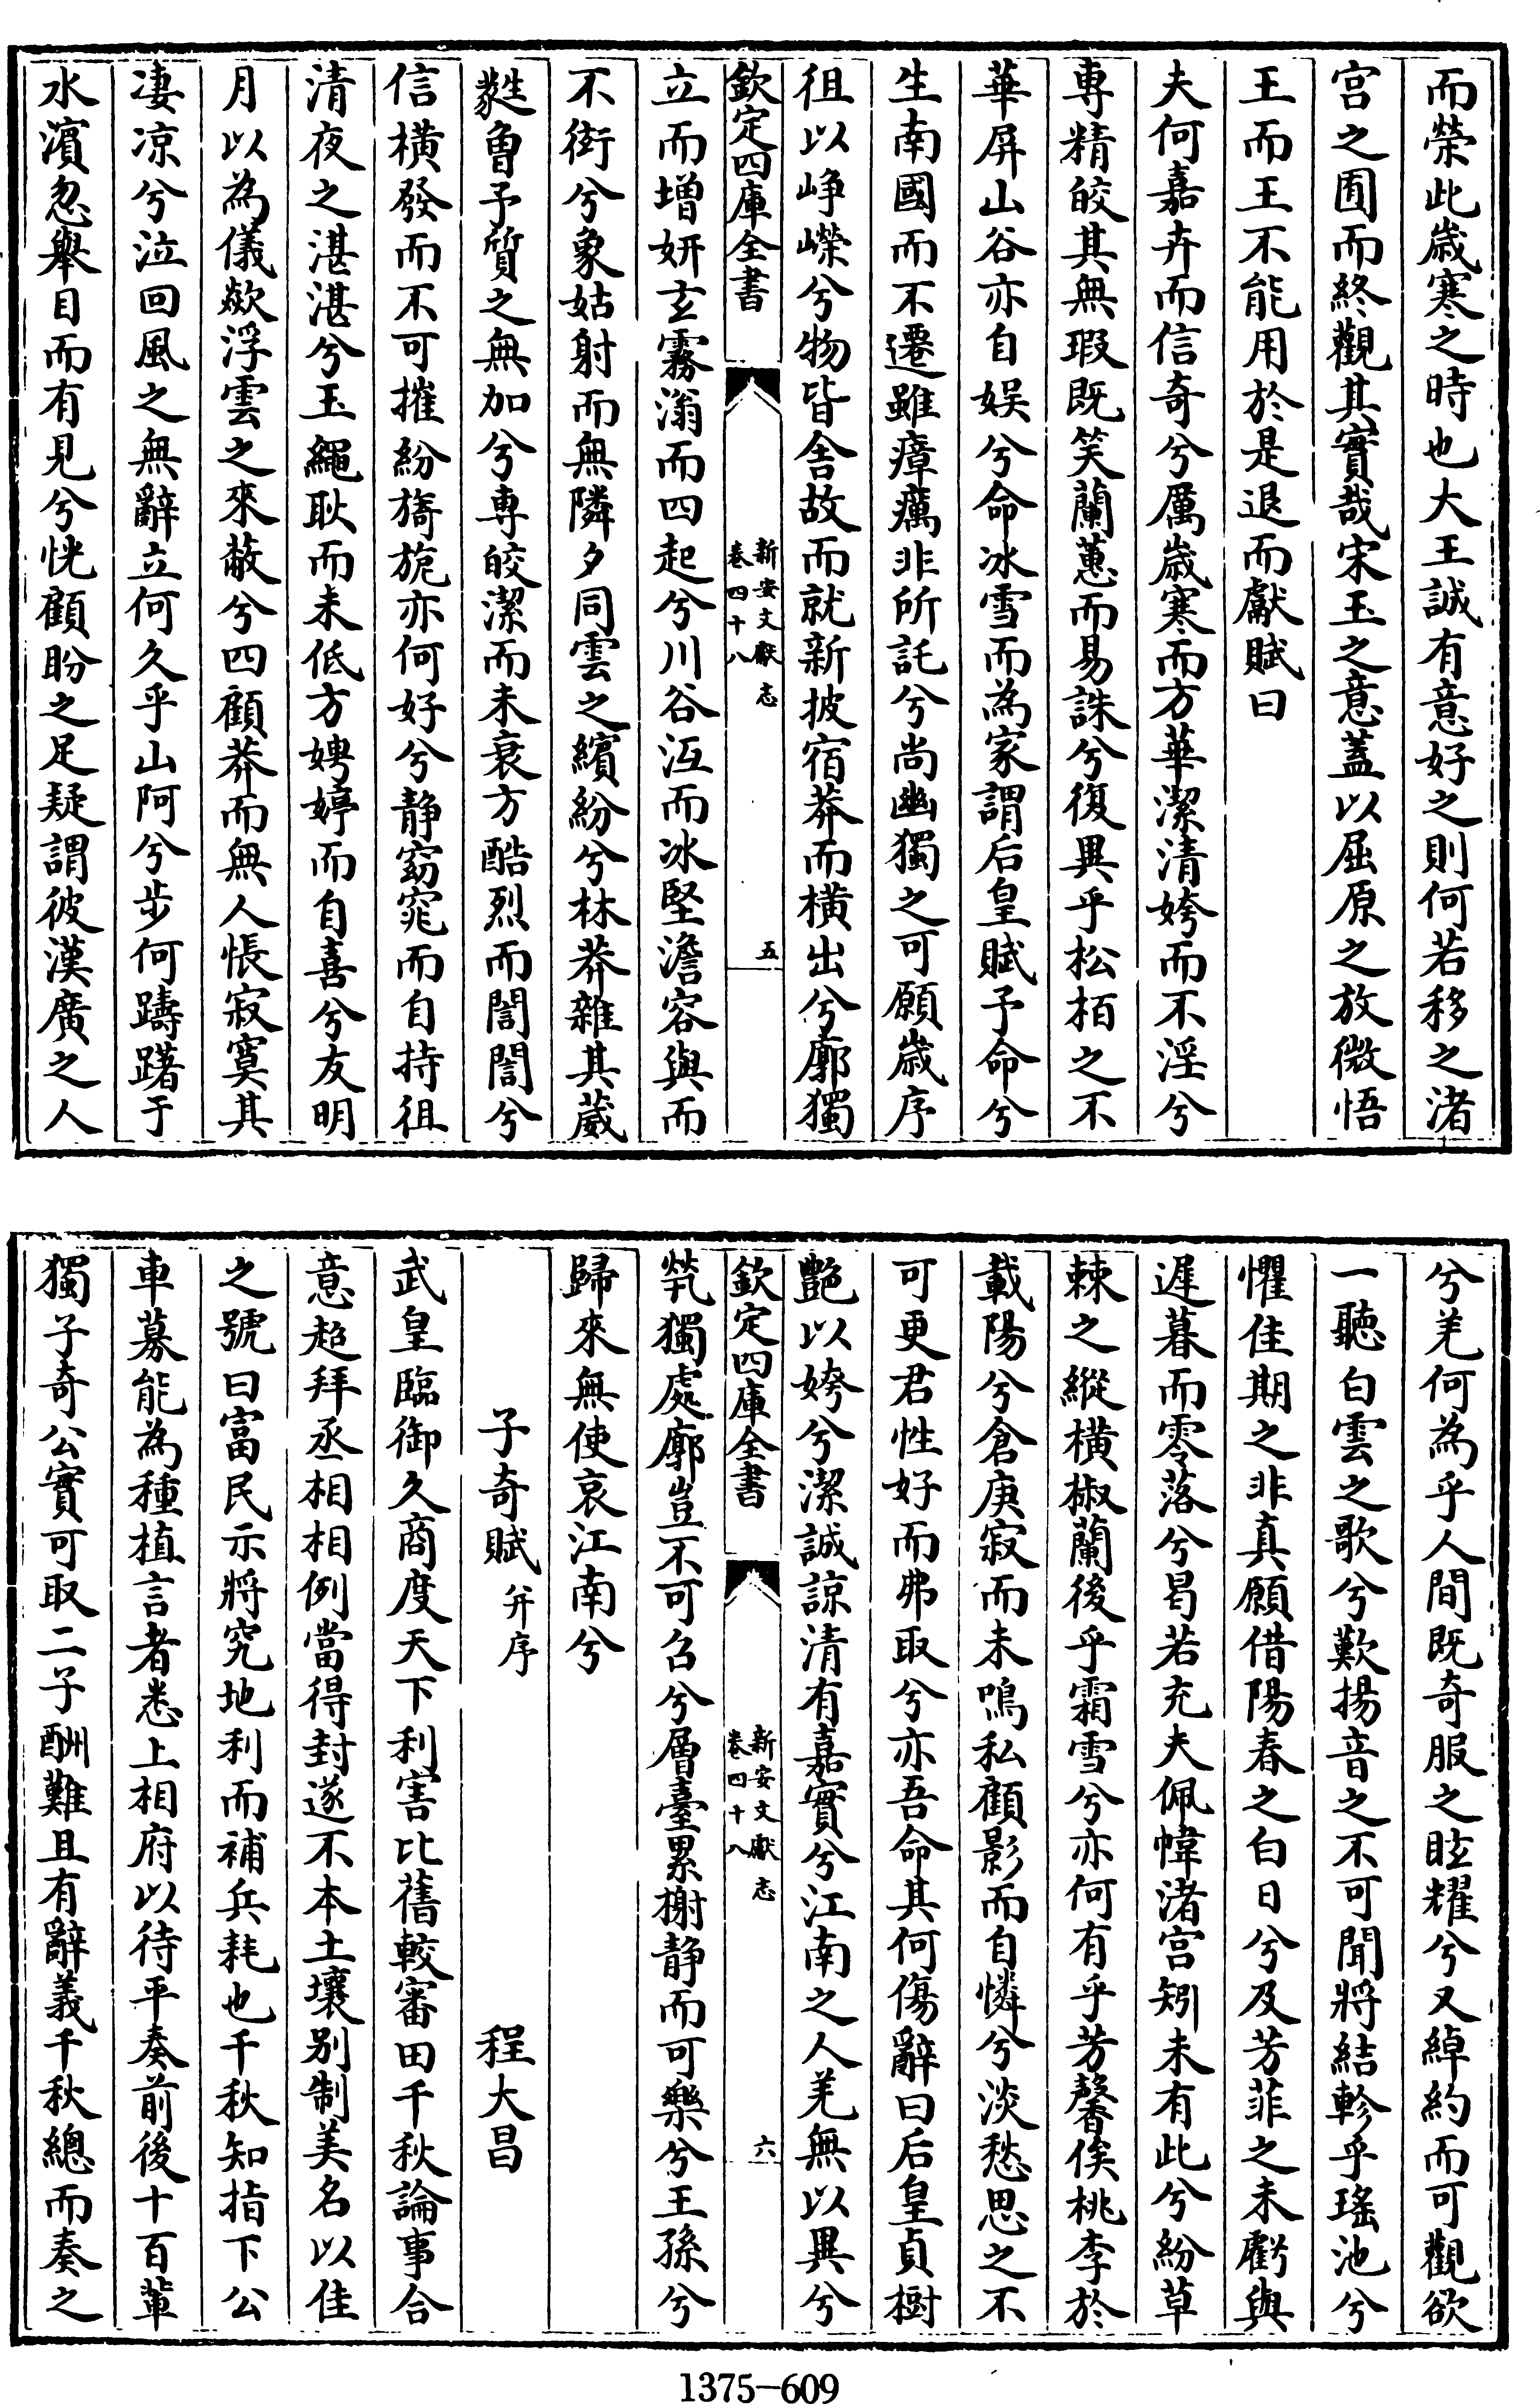 而榮此歲寒之時也大王誠有意好之則何若移之渚
宮之囿而終觀其實哉宋玉之意蓋以屈原之放微悟
王而王不能用於是退而獻賦曰
夫何嘉卉而信奇兮厲歲寒而方華潔清姱而不淫兮
專精皎其無瑕既笑蘭蕙而易誅兮復異乎松柏之不
華屏山谷亦自娛兮命冰雪而為家謂后皇賦予命兮
生南國而不遷雖瘴癘非所託兮尚幽獨之可願歲序
徂以崢嶸兮物皆舍故而就新披宿莽而橫出兮廓獨
欽定四庫全書
新安文獻志
卷四十八
五
立而增妍玄霧滃而四起兮川谷冱而冰堅澹容與而
不衒兮象姑射而無隣夕同雲之繽紛兮林莽雜其葳
蕤曾予質之無加兮專皎潔而未衰方酷烈而誾誾兮
信橫發而不可摧紛旖旎亦何好兮静窈窕而自持徂
清夜之湛湛兮玉繩耿而未低方娉婷而自喜兮友明
月以為儀歘浮雲之來蔽兮四顧莽而無人悵寂寞其
凄凉兮泣回風之無辭立何久乎山阿兮步何躊躇于
水濵忽舉目而有見兮恍顧盼之足疑謂彼漢廣之人
兮羌何為乎人間既奇服之眩耀兮又綽約而可觀欲
一聽白雲之歌兮歎揚音之不可聞將結軫乎瑤池兮
懼佳期之非真願借陽春之白日兮及芳菲之未虧與
遲暮而零落兮曷若充夫佩幃渚宮矧未有此兮紛草
棘之縱橫椒蘭後乎霜雪兮亦何有乎芳馨俟桃李於
載陽兮倉庚寂而未鳴私顧影而自憐兮淡愁思之不
可更君性好而弗取兮亦吾命其何傷辭曰后皇貞樹
艷以姱兮潔誠諒清有嘉實兮江南之人羌無以異兮
欽定四庫全書
新安文獻志
卷四十八
六
煢獨處廓豈不可召兮層臺累榭静而可樂兮王孫兮
歸來無使哀江南兮
子奇賦 并序 程大昌
武皇臨御久商度天下利害比舊較審田千秋論事合
意超拜丞相相例當得封遂不本土壤别制美名以佳
之號曰富民示將究地利而補兵耗也千秋知指下公
車募能為種植言者悉上相府以待平奏前後十百輩
獨子奇公實可取二子酬難且有辭義千秋總而奏之
1375-609